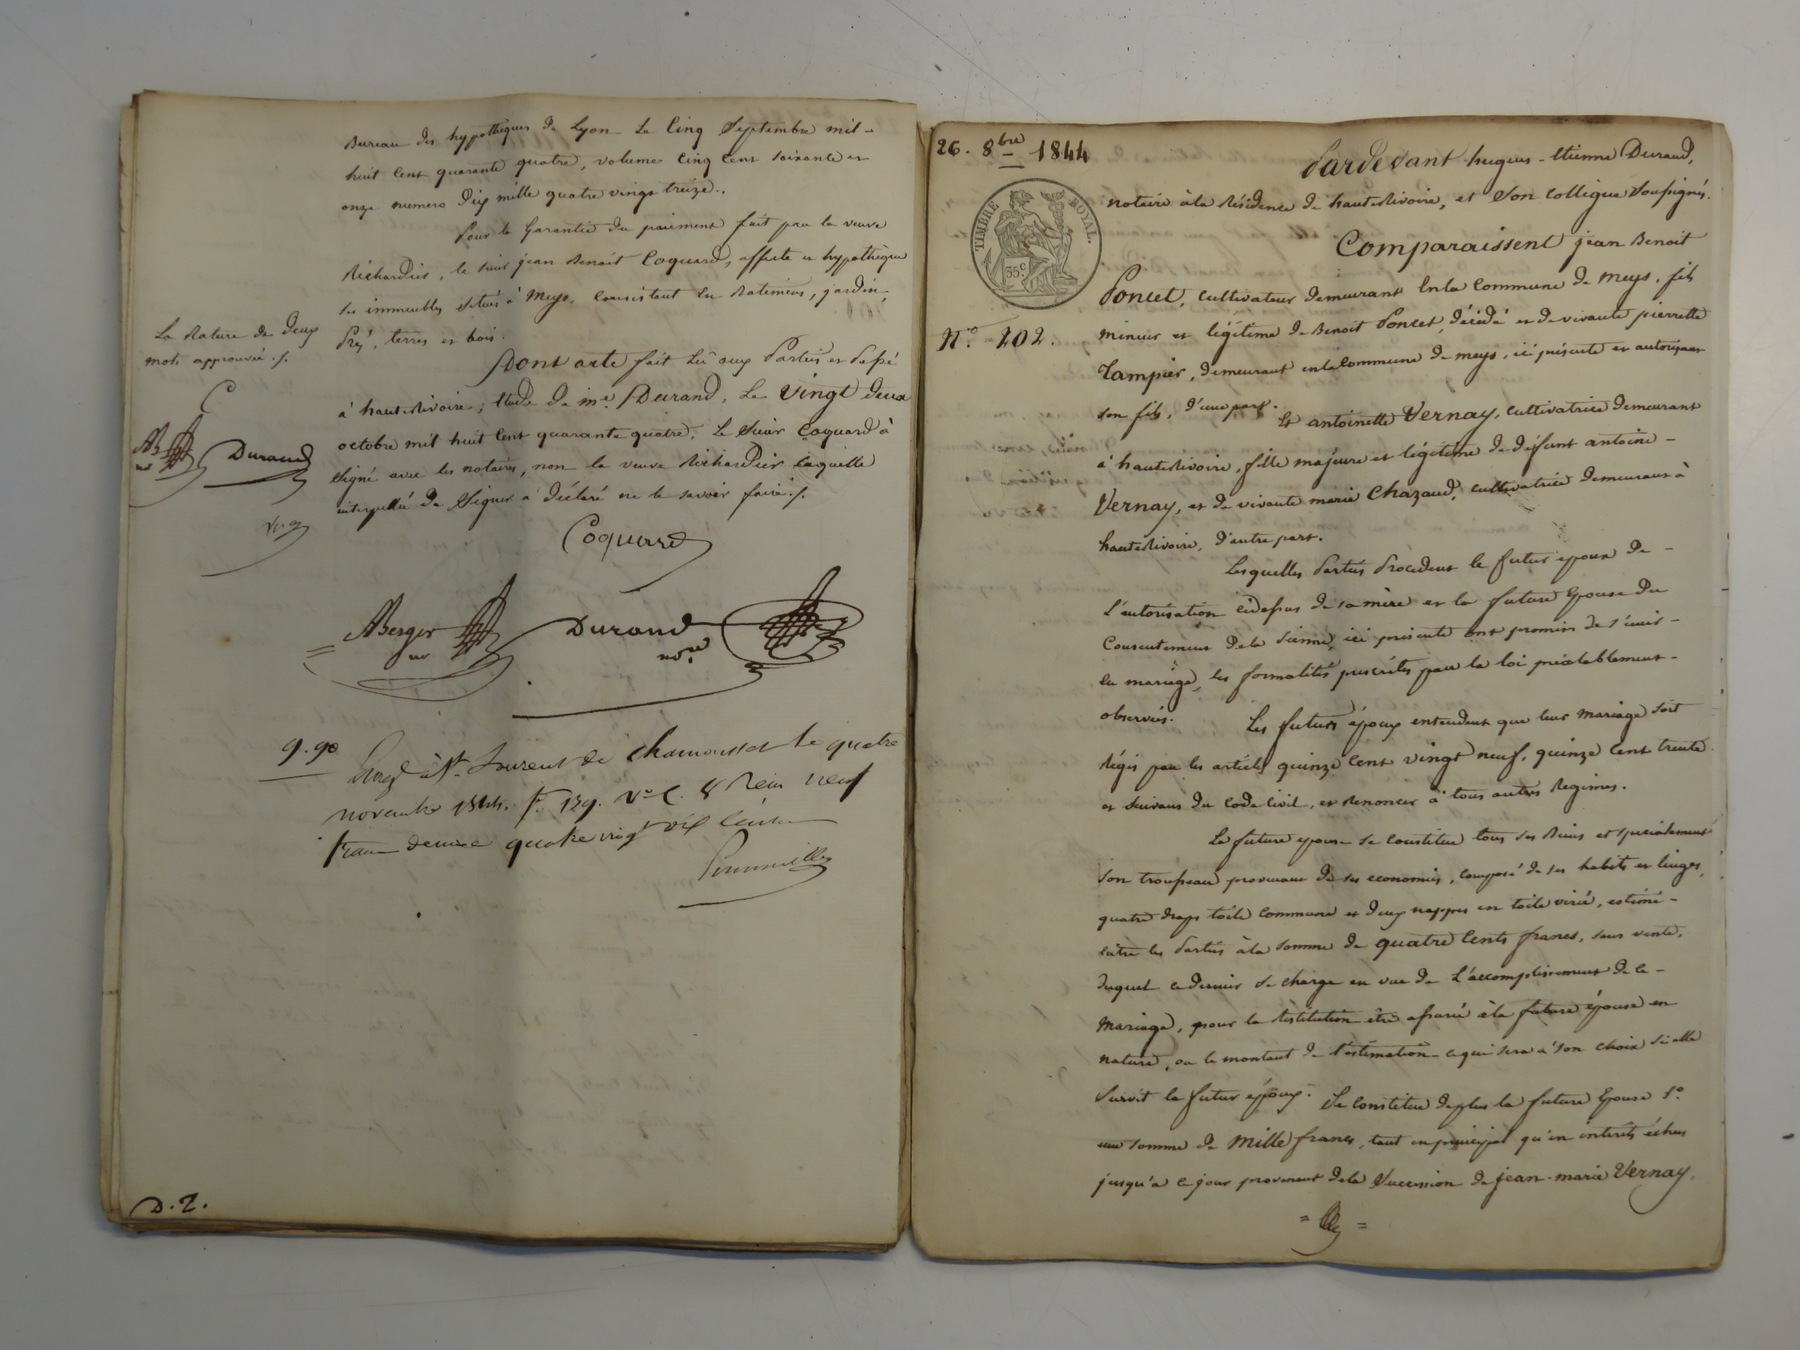 Bureau des hypothèques de Lyon Le Cinq Septembre mil-
huit Cent quarante quatre, volume Cinq Cent Soixante et
onze numero Dix mille quatre vingt treize..
Pour la Garantie du paiement fait par la veuve
Richardier, le sieur jean Benoit Coquard, affecte et hypothèque
ses immeubles situés à Meys, Consistant en Batimens, jardin,
Prés, terres et bois.
Dont acte fait Lu aux Parties et Passé
à haute-Rivoire, Etude de me. Durand, Le Vingt deux
octobre mil huit Cent quarante quatre. Le Sieur Coquard à
Signé avec les notaires, non la veuve Richardier laquelle
interpellée de Signer a déclaré ne le savoir faire./.
La Rature de deux
mots approuvée ./.
C
AB
nre
Durand
Coquard
ABerger
nre
Durand
nore
9.90
Enregé à St. Laurent de Chamousset le quatre
novembre 1844. f° 139. Vo C. 8 Reçu neuf
francs decime quatre vingt dix Centimes
D.2.
26. 8bre 1844
TIMBRE ROYAL.
35c
No. 202.
Pardevant hugues-Etienne Durand,
notaire à la Résidence de haute-Rivoire, et Son Collègue Soussignés.
Comparaissent jean Benoit
Poncet, cultivateur demeurant En la Commune de Meys, fils
mineur et légitime de Benoit Poncet, décédé et de vivante pierrette
Tampier, demeurant en la Commune de meys, ici présente et autorisant
son fils, d'une part.
Et antoinette Vernay, cultivatrice demeurant
à haute-Rivoire, fille majeure et légitime de défunt antoine-
Vernay, et de vivante marie Chazaud, cultivatrice demeurant à
haute-Rivoire, d'autre part.
Lesquelles Parties Procedant le futur epoux de-
L'autorisation cidessus de sa mère et la future Epouse du
Consentement de la Sienne, ici présente ont promis de s'unir-
en mariage, les formalités prescrites par la loi préalablement-
observées.
Les futurs époux entendent que leur mariage soit
Régis par les articles quinze Cent vingt neuf, quinze Cent trente
et Suivans du Code Civil, et Renoncer à tous autres Régimes.
La future epouse se Constitue tous ses Biens et specialement
son trousseau provenant de ses economies, composé de ses habits et linges,
quatre draps toile commune et deux nappes en toile virée, estimé-
entre les Parties à la somme de quatre Cents francs, sans vente,
duquel ce dernier se charge en vue de L'accomplissement de ce-
Mariage, pour la Restitution être assurée à la future épouse en
nature, ou le montant de l'estimation ce qui sera à son choix si elle
survit le futur époux.
Se Constitue de plus la future Epouse 1o
une somme de Mille francs, tant en principal qu'en intérêts échus
jusqu'à ce jour provenant de la Succession de jean-marie Vernay,